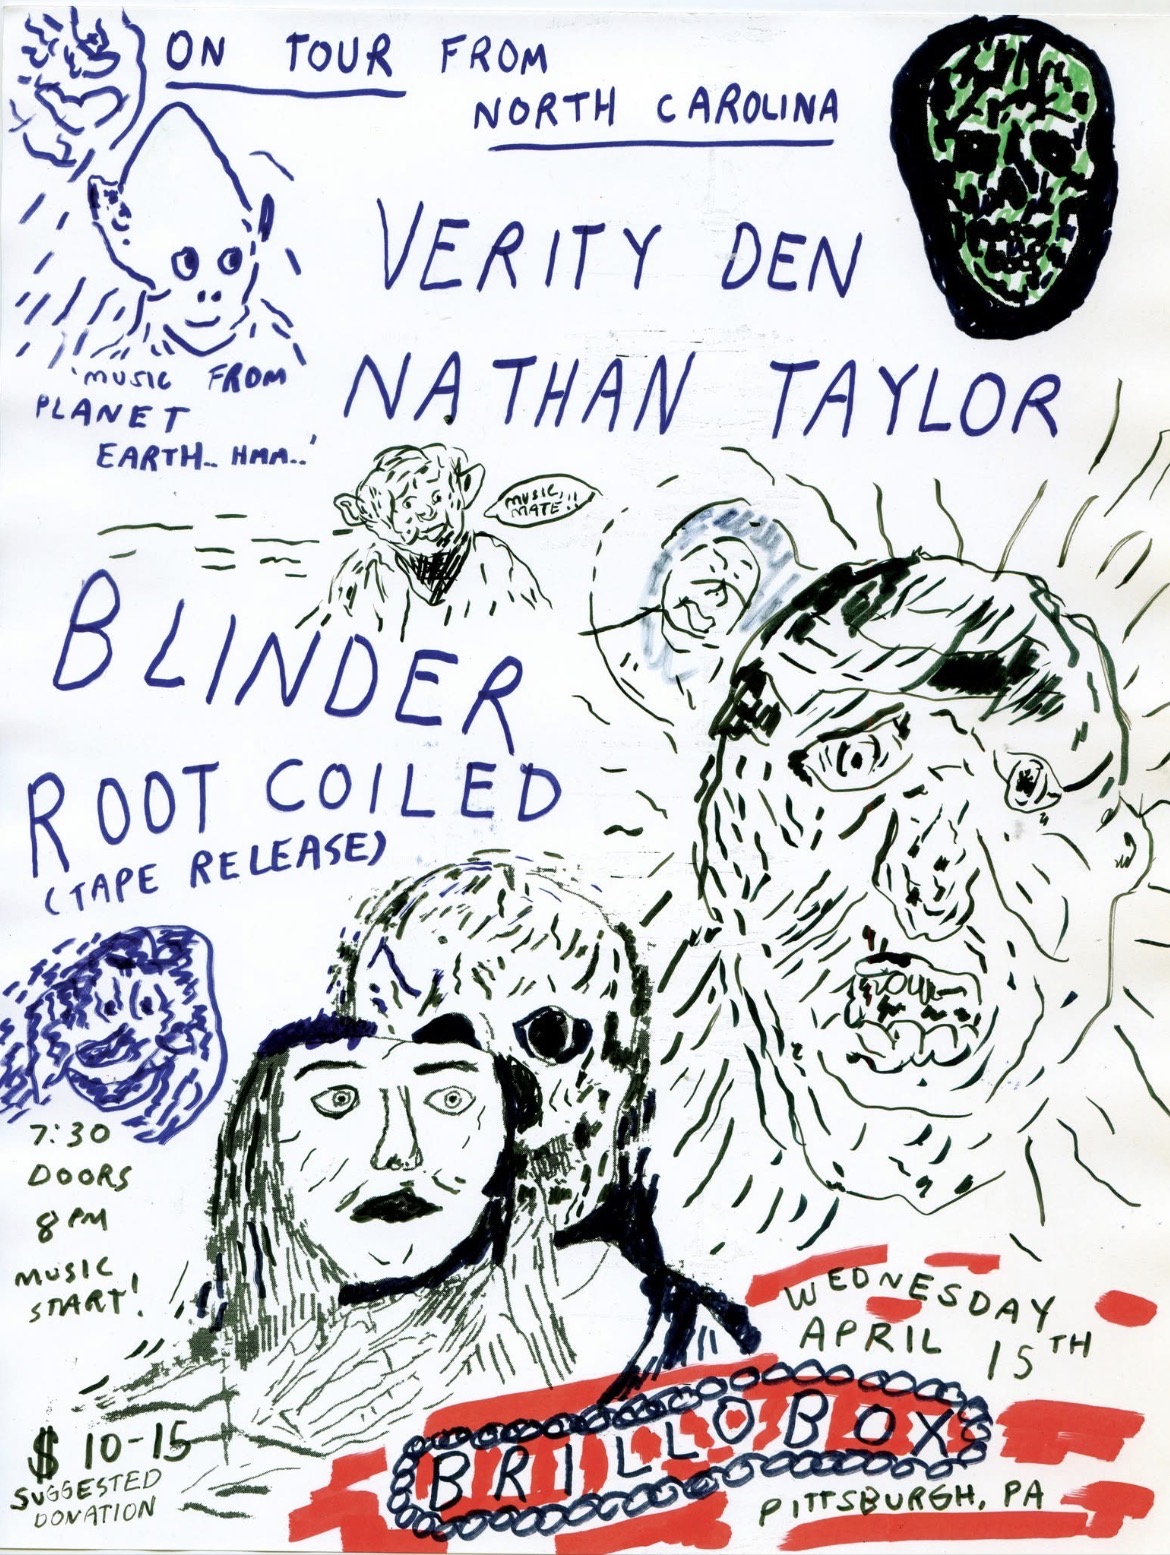 ON TOUR FROM
NORTH CAROLINA
VERITY DEN
NATHAN TAYLOR
'MUSIC FROM
PLANET
EARTH.. HMM..'
MUSIC,
MATE!!
BLINDER
ROOT COILED
(TAPE RELEASE)
7:30
DOORS
8 PM
MUSIC
START!
$ 10-15
SUGGESTED
DONATION
WEDNESDAY
APRIL 15TH
BRILLOBOX
PITTSBURGH, PA